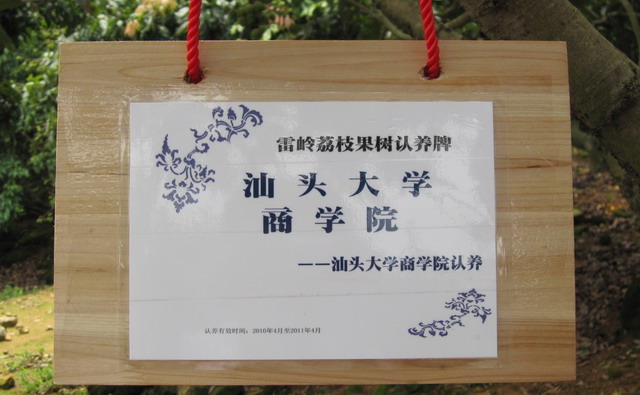 雷岭荔枝果树认养牌
汕头大学
商学院
——汕头大学商学院认养
认养有效时间：2010年4月至2011年4月